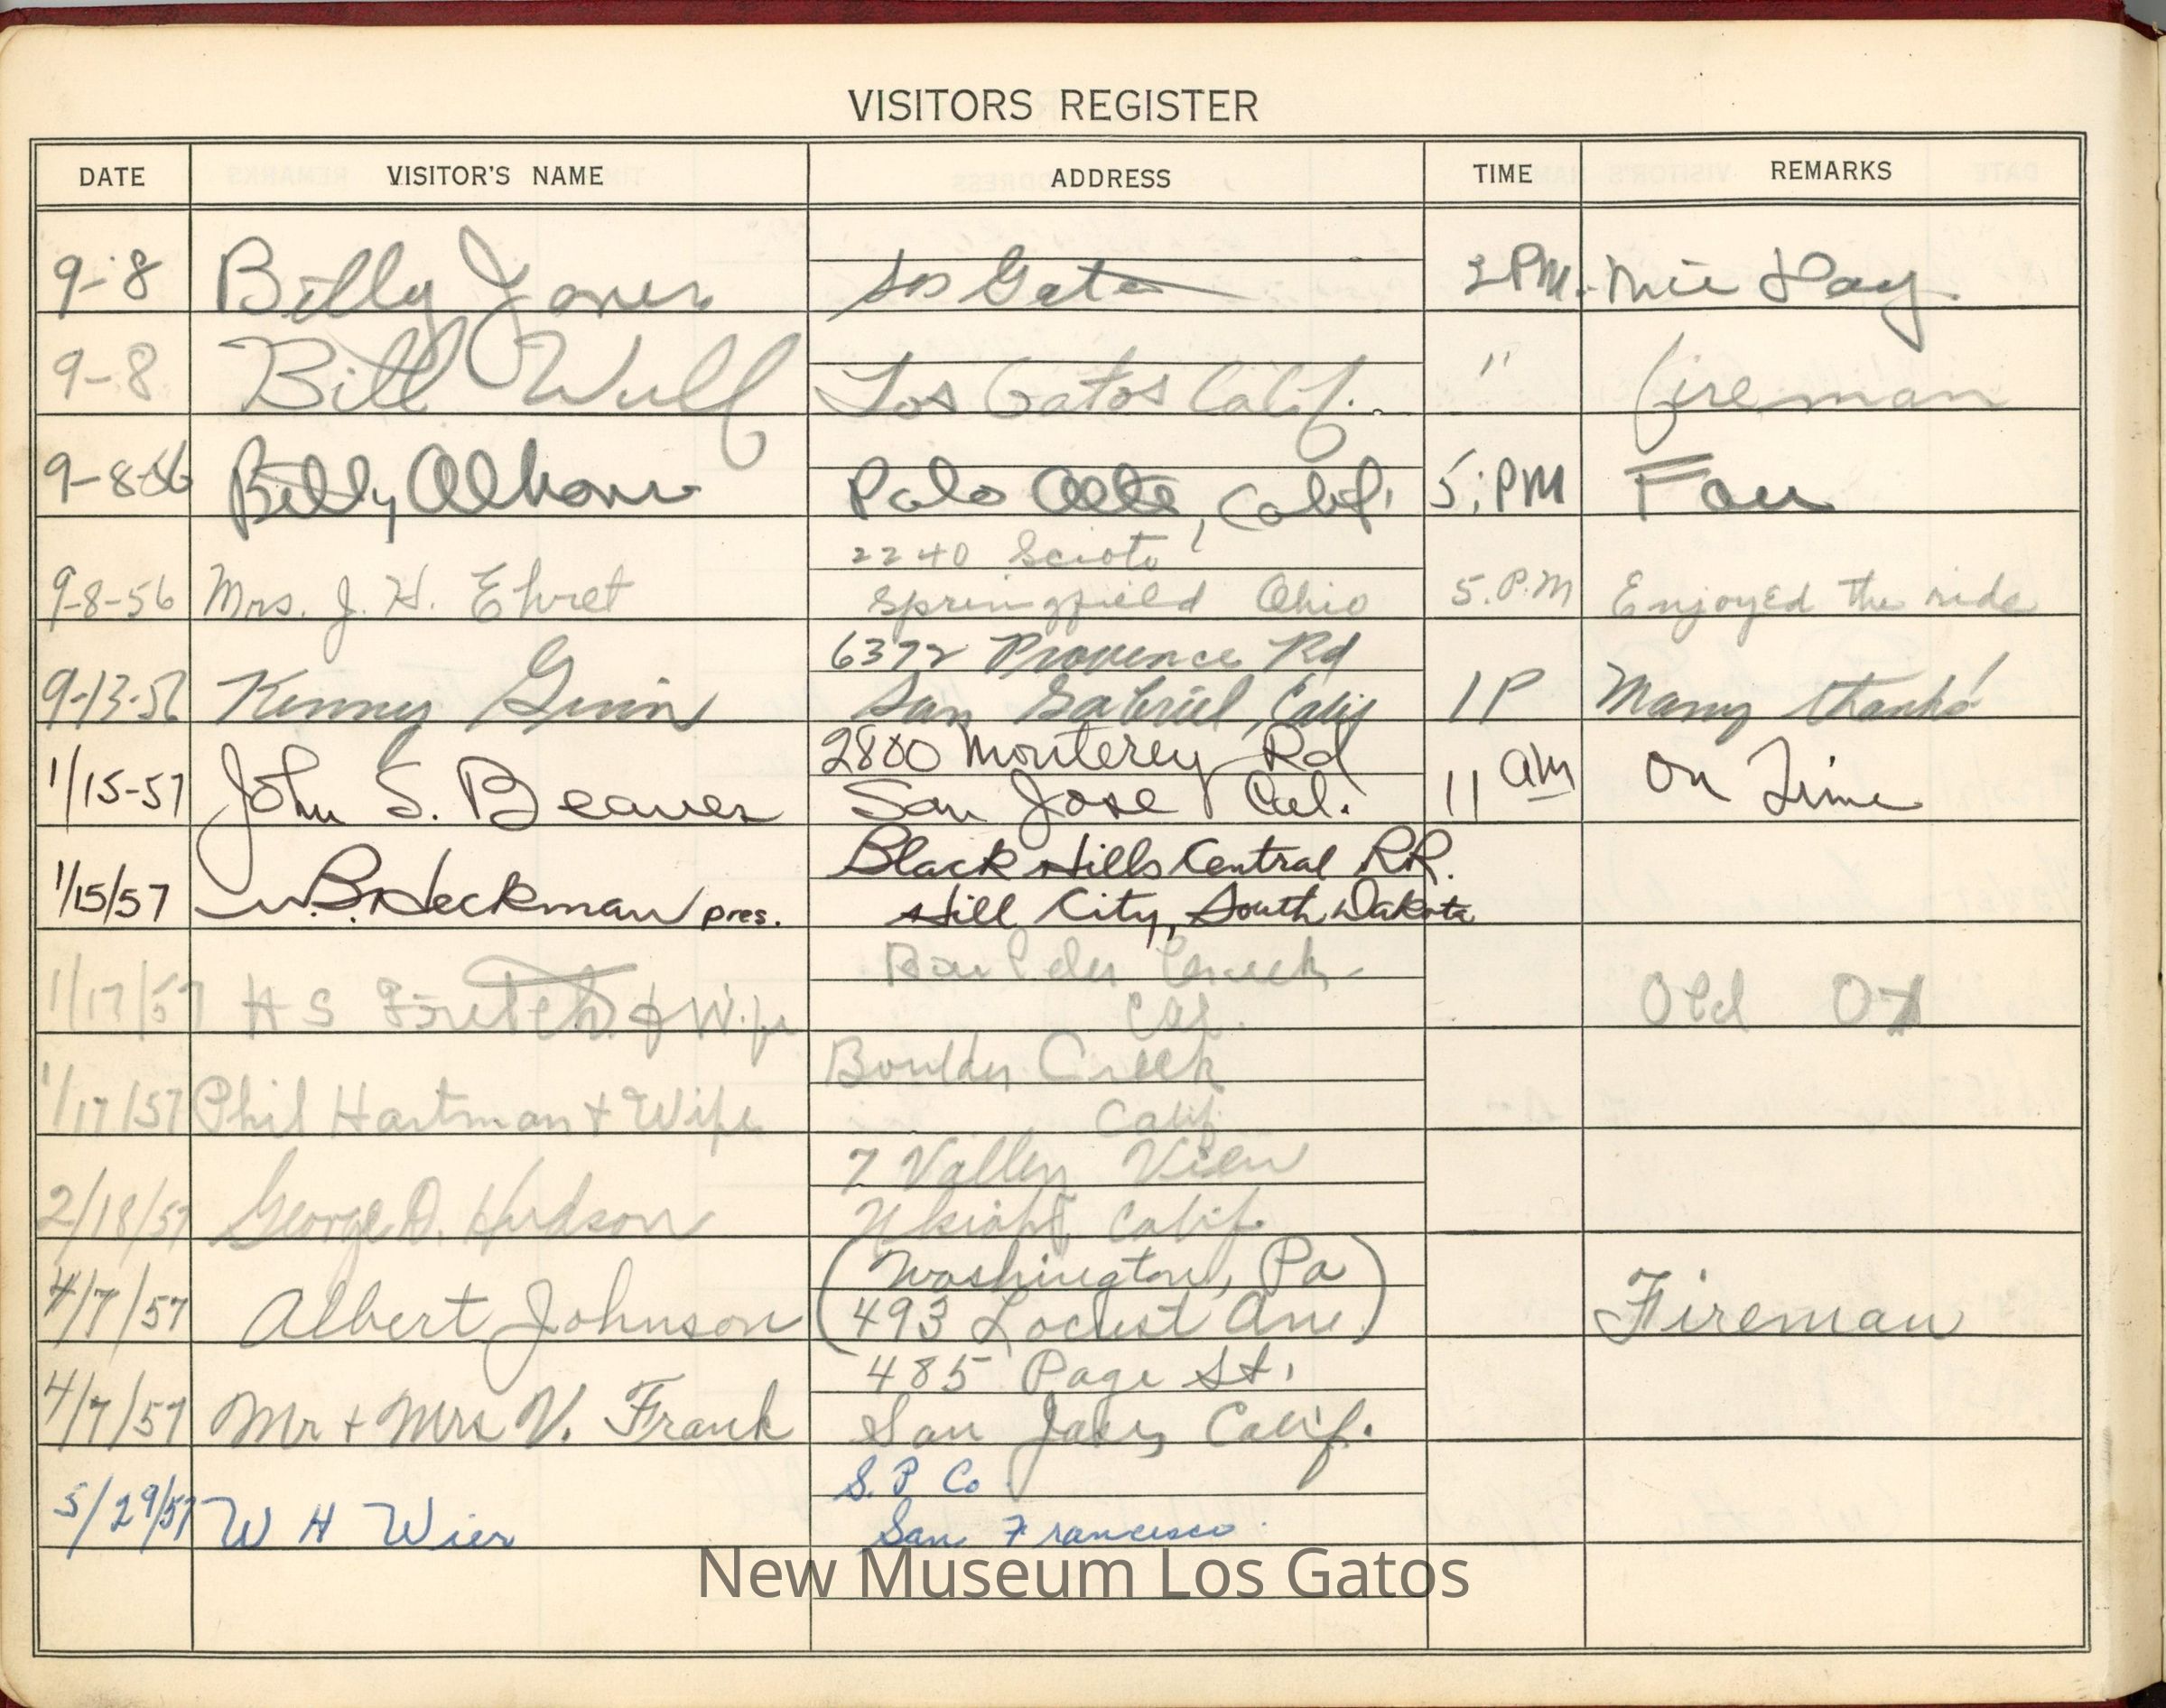 VISITORS REGISTER
DATE VISITOR'S NAME ADDRESS TIME REMARKS
9-8 Billy Jones Los Gatos 2 PM. Nice Day
9-8 Bill Wulf Los Gatos Calif. " fireman
9-8-56 Billy Palo Alto, Calif. 5:PM
2240 Scioto
9-8-56 Mrs. J. H. Ehret Springfield Ohio 5.P.M Enjoyed the ride
6372 Provence Rd
9-13-56 Kenny San Gabriel, Calif 1P Many thanks!
2800 Monterey Rd
1/15-57 John S. Beaver San Jose Cal. 11 am On Time
Black Hills Central RR.
1/15/57 W.B. Heckman pres. Hill City, South Dakota
Creek
1/17/57 H S & Wife Cal. Old
Boulder Creek
1/17/57 Phil Hartman + Wife Calif
7 Valley View
2/18/57 George D. Hudson Ukiah Calif.
(Washington, Pa
4/7/57 Albert Johnson 493 Locust Ave.) Fireman
485 Page St.
4/7/57 Mr + Mrs V. Frank San Calif.
S. P Co
5/29/57 W H Wier San Francisco.
New Museum Los Gatos